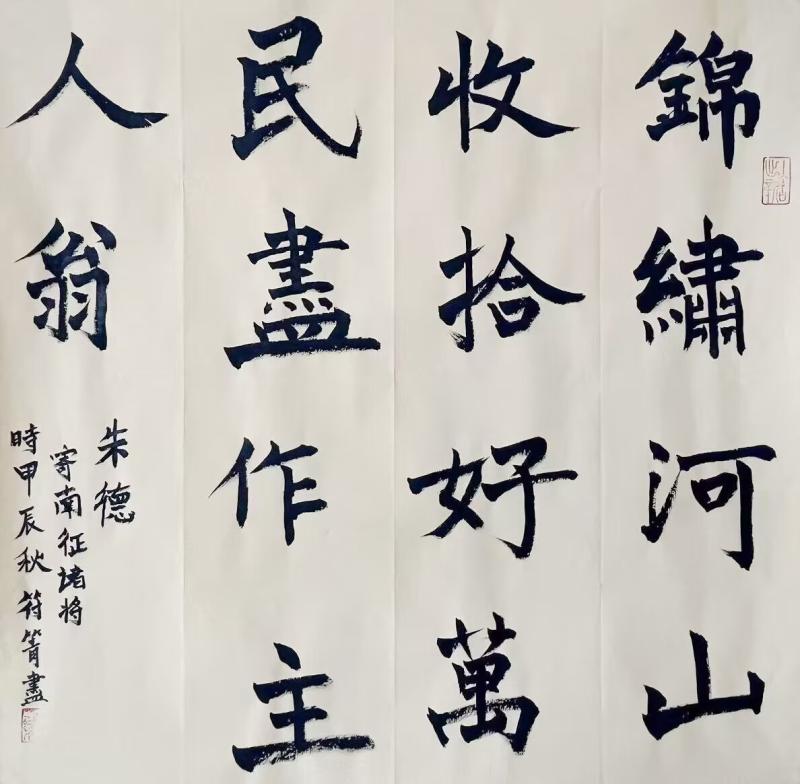 錦繡河山
收拾好萬
民盡作主
人翁
朱德
寄南征諸將
時甲辰秋符箐盡